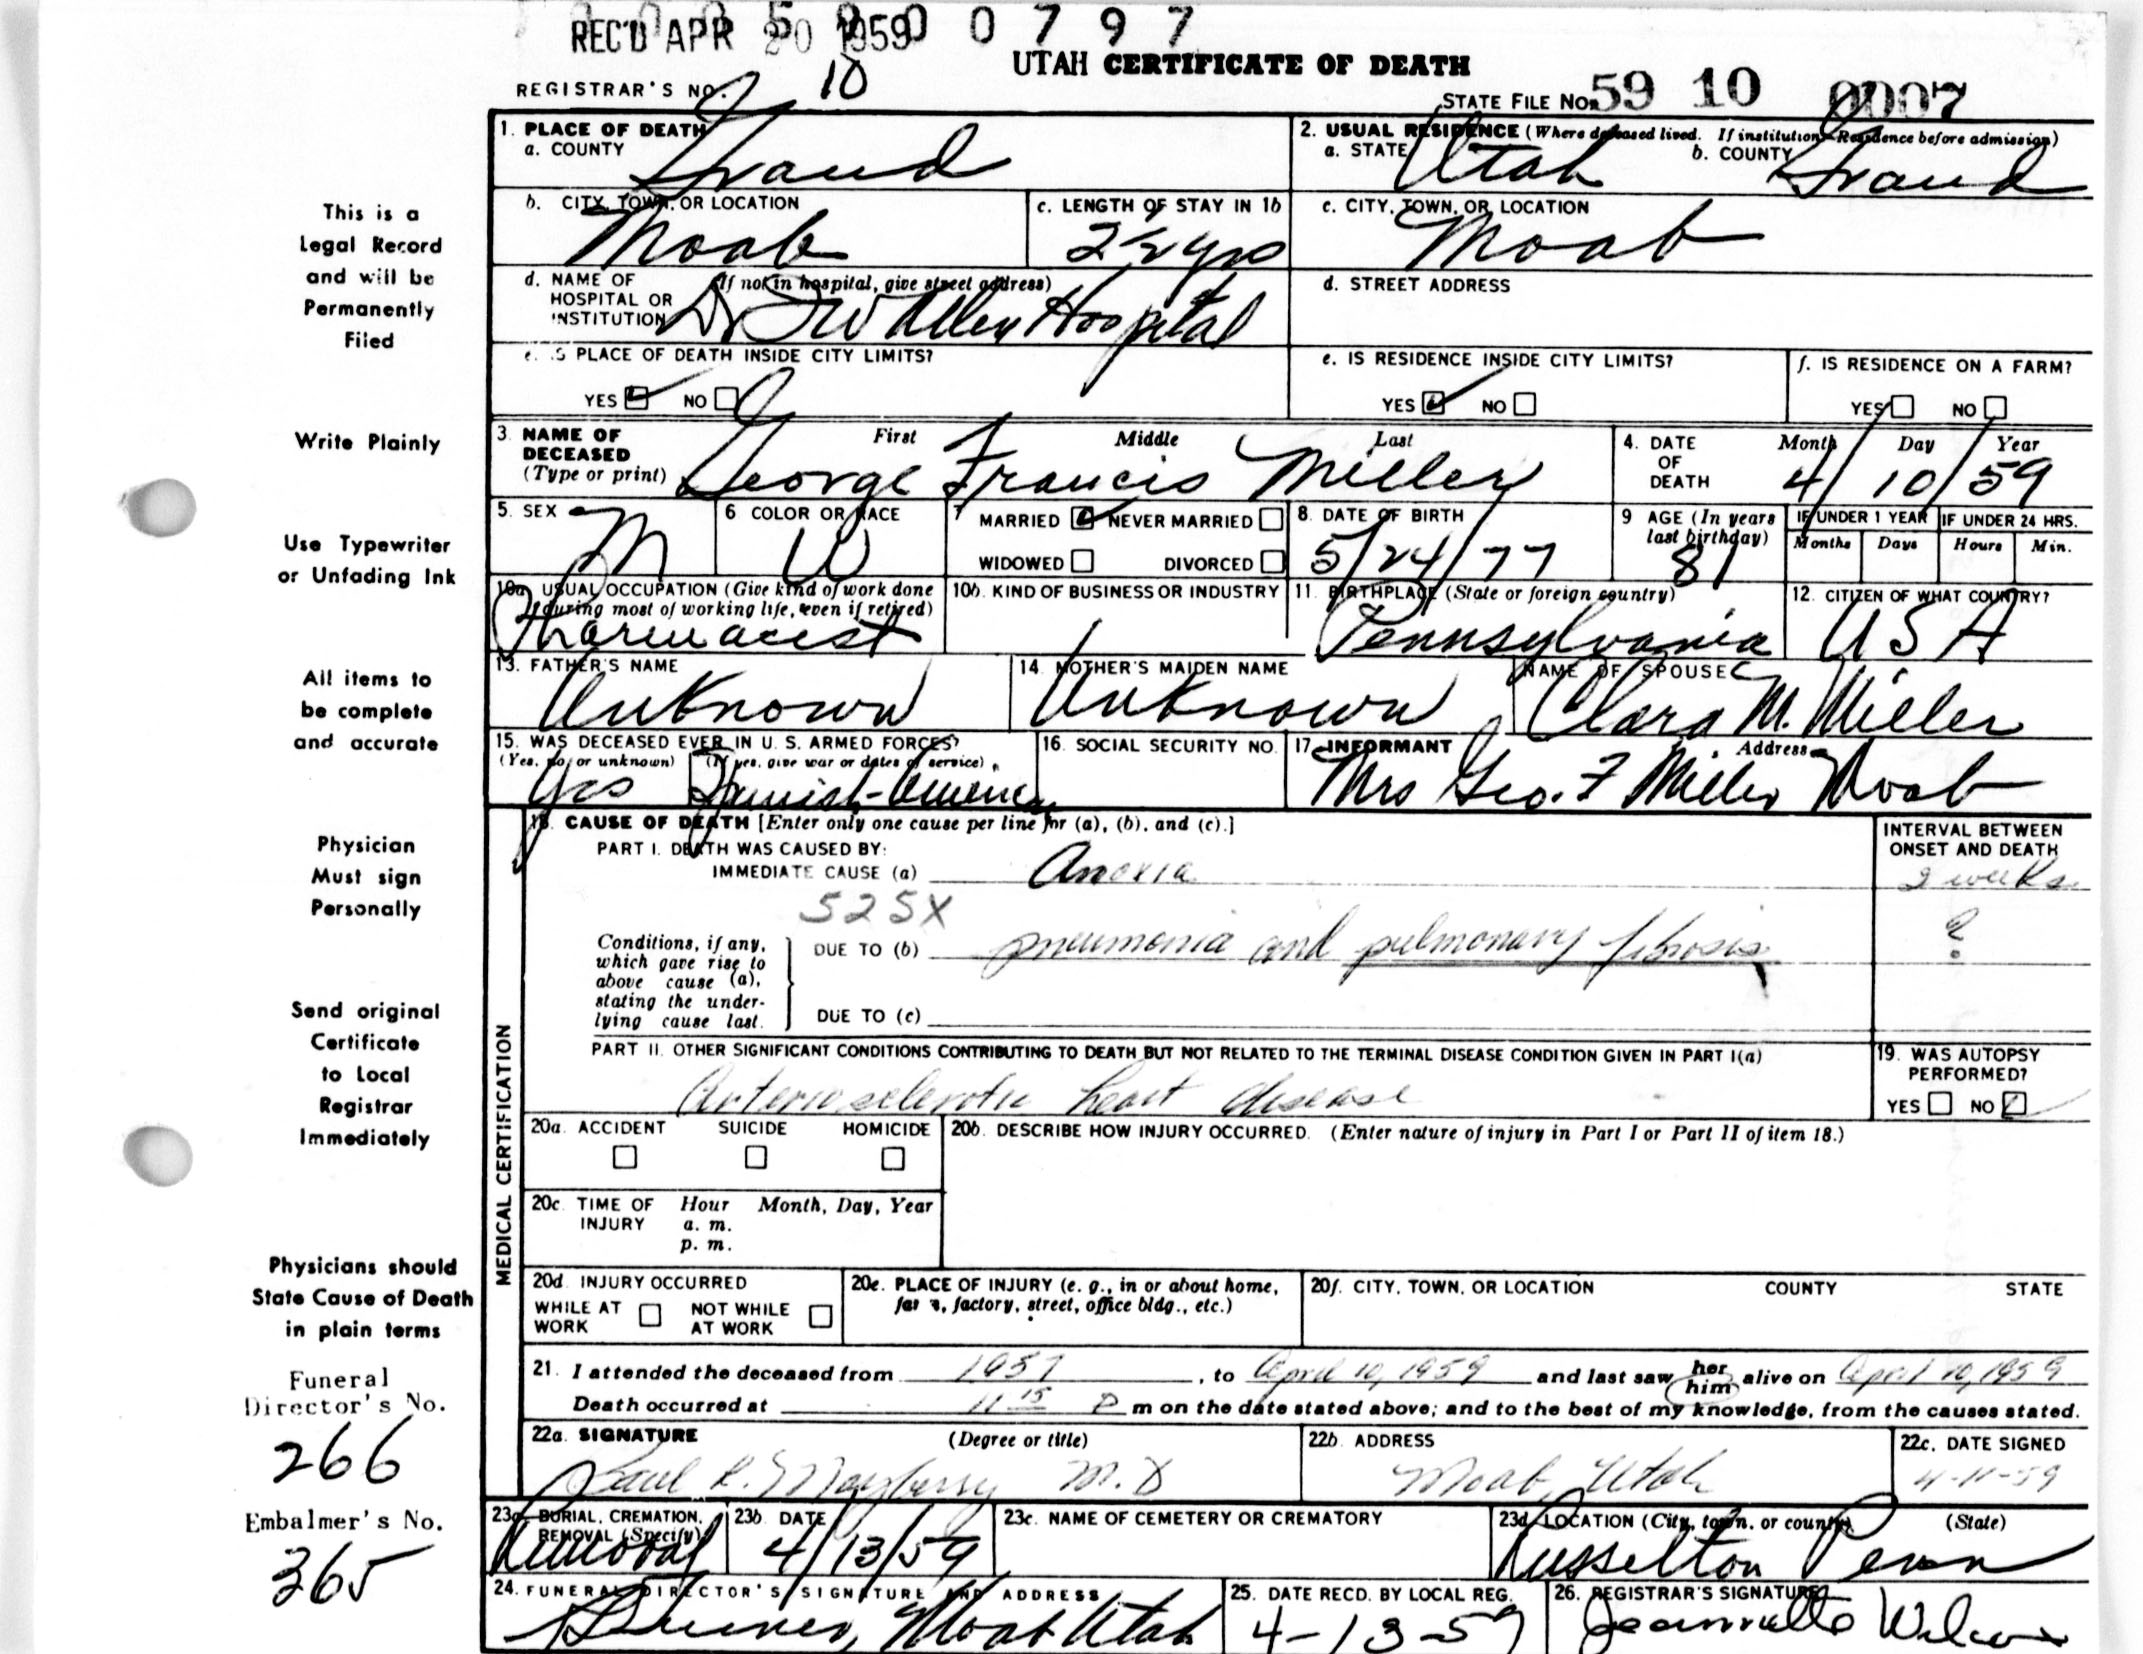 REC'D APR 20 1959 0 0 7 9 7
UTAH CERTIFICATE OF DEATH
REGISTRAR'S NO. 10
STATE FILE NO. 59 10 0007
1. PLACE OF DEATH
a. COUNTY Grand
2. USUAL RESIDENCE (Where deceased lived. If institution: Residence before admission)
a. STATE Utah b. COUNTY Grand
b. CITY, TOWN, OR LOCATION Moab
c. LENGTH OF STAY IN 1b 2 1/2 yrs
c. CITY, TOWN, OR LOCATION Moab
d. NAME OF HOSPITAL OR INSTITUTION (If not in hospital, give street address) Dr I W Allen Hospital
d. STREET ADDRESS
e. IS PLACE OF DEATH INSIDE CITY LIMITS?
YES NO
e. IS RESIDENCE INSIDE CITY LIMITS?
YES NO
f. IS RESIDENCE ON A FARM?
YES NO
3. NAME OF DECEASED (Type or print) First Middle Last
George Francis Miller
4. DATE OF DEATH Month Day Year
4/10/59
5. SEX M
6 COLOR OR RACE W
7 MARRIED NEVER MARRIED
WIDOWED DIVORCED
8. DATE OF BIRTH 5/24/77
9 AGE (In years last birthday) 81
IF UNDER 1 YEAR IF UNDER 24 HRS.
Months Days Hours Min.
10a USUAL OCCUPATION (Give kind of work done during most of working life, even if retired)
Pharmacist
10b. KIND OF BUSINESS OR INDUSTRY
11. BIRTHPLACE (State or foreign country)
Pennsylvania
12. CITIZEN OF WHAT COUNTRY?
USA
13. FATHER'S NAME
Unknown
14. MOTHER'S MAIDEN NAME
Unknown
NAME OF SPOUSE
Clara M. Miller
15. WAS DECEASED EVER IN U. S. ARMED FORCES?
(Yes, no, or unknown) (If yes, give war or dates of service)
Yes
16. SOCIAL SECURITY NO.
17. INFORMANT Address
Mrs Geo. F Miller Moab
MEDICAL CERTIFICATION
18. CAUSE OF DEATH [Enter only one cause per line for (a), (b), and (c).]
INTERVAL BETWEEN ONSET AND DEATH
PART I. DEATH WAS CAUSED BY:
IMMEDIATE CAUSE (a) Anoxia 2 weeks
525X
Conditions, if any, which gave rise to above cause (a), stating the underlying cause last.
DUE TO (b) pneumonia and pulmonary fibrosis ?
DUE TO (c)
PART II. OTHER SIGNIFICANT CONDITIONS CONTRIBUTING TO DEATH BUT NOT RELATED TO THE TERMINAL DISEASE CONDITION GIVEN IN PART I(a)
Arteriosclerotic heart disease
19. WAS AUTOPSY PERFORMED?
YES NO
20a. ACCIDENT SUICIDE HOMICIDE
20b. DESCRIBE HOW INJURY OCCURRED. (Enter nature of injury in Part I or Part II of item 18.)
20c. TIME OF INJURY Hour Month, Day, Year
a. m.
p. m.
20d. INJURY OCCURRED
WHILE AT WORK NOT WHILE AT WORK
20e. PLACE OF INJURY (e. g., in or about home, farm, factory, street, office bldg., etc.)
20f. CITY, TOWN, OR LOCATION COUNTY STATE
21. I attended the deceased from 1957, to April 10, 1959 and last saw her him alive on April 10, 1959
Death occurred at 11 15 P m on the date stated above; and to the best of my knowledge, from the causes stated.
22a. SIGNATURE (Degree or title)
Paul R. Mayberry M.D
22b. ADDRESS
Moab, Utah
22c. DATE SIGNED
4-11-59
23a. BURIAL, CREMATION, REMOVAL (Specify)
Removal
23b. DATE
4/13/59
23c. NAME OF CEMETERY OR CREMATORY
23d. LOCATION (City, town, or county) (State)
Russelton Penn
24. FUNERAL DIRECTOR'S SIGNATURE AND ADDRESS
Moab Utah
25. DATE RECD. BY LOCAL REG.
4-13-59
26. REGISTRAR'S SIGNATURE
Jeannette Wilcox
This is a
Legal Record
and will be
Permanently
Filed
Write Plainly
Use Typewriter
or Unfading Ink
All items to
be complete
and accurate
Physician
Must sign
Personally
Send original
Certificate
to Local
Registrar
Immediately
Physicians should
State Cause of Death
in plain terms
Funeral
Director's No.
266
Embalmer's No.
365